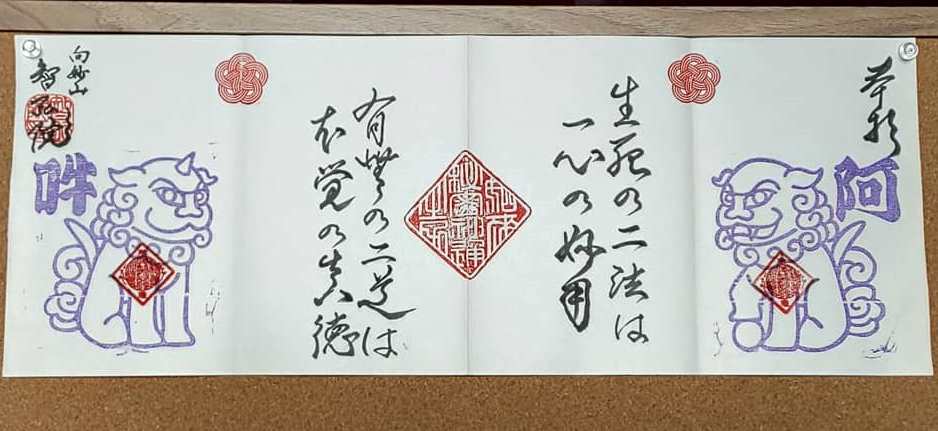 阿
生死の二法は
一心の妙用
有無の二道は
本覚の真徳
向妙山
智弘院
吽